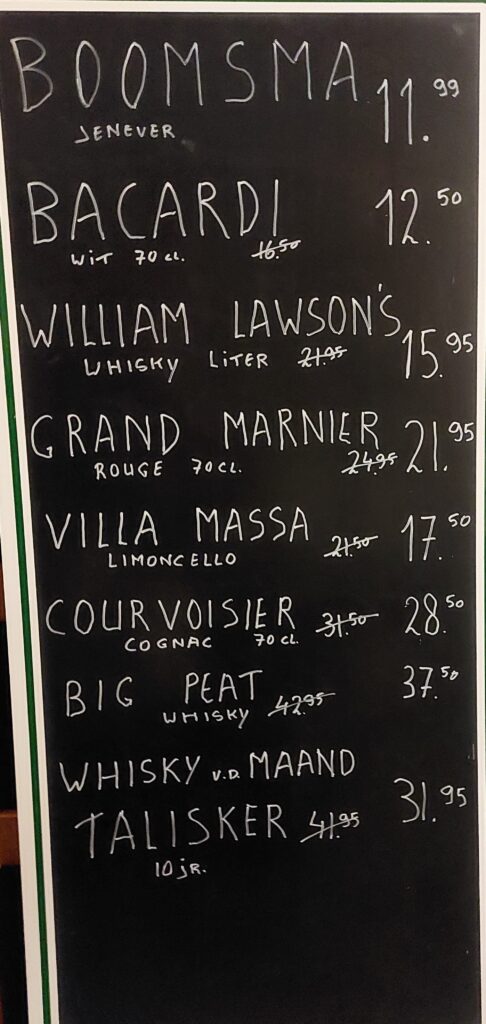 BOOMSMA 11.99
JENEVER
BACARDI 12.50
WIT 70 CL. 16.50
WILLIAM LAWSON'S 15.95
WHISKY LITER 21.95
GRAND MARNIER 21.95
ROUGE 70CL. 24.95
VILLA MASSA 21.50 17.50
LIMONCELLO
COURVOISIER 31.50 28.50
COGNAC 70 CL.
BIG PEAT 37.50
WHISKY 42.95
WHISKY V.D. MAAND
TALISKER 41.95 31.95
10 JR.